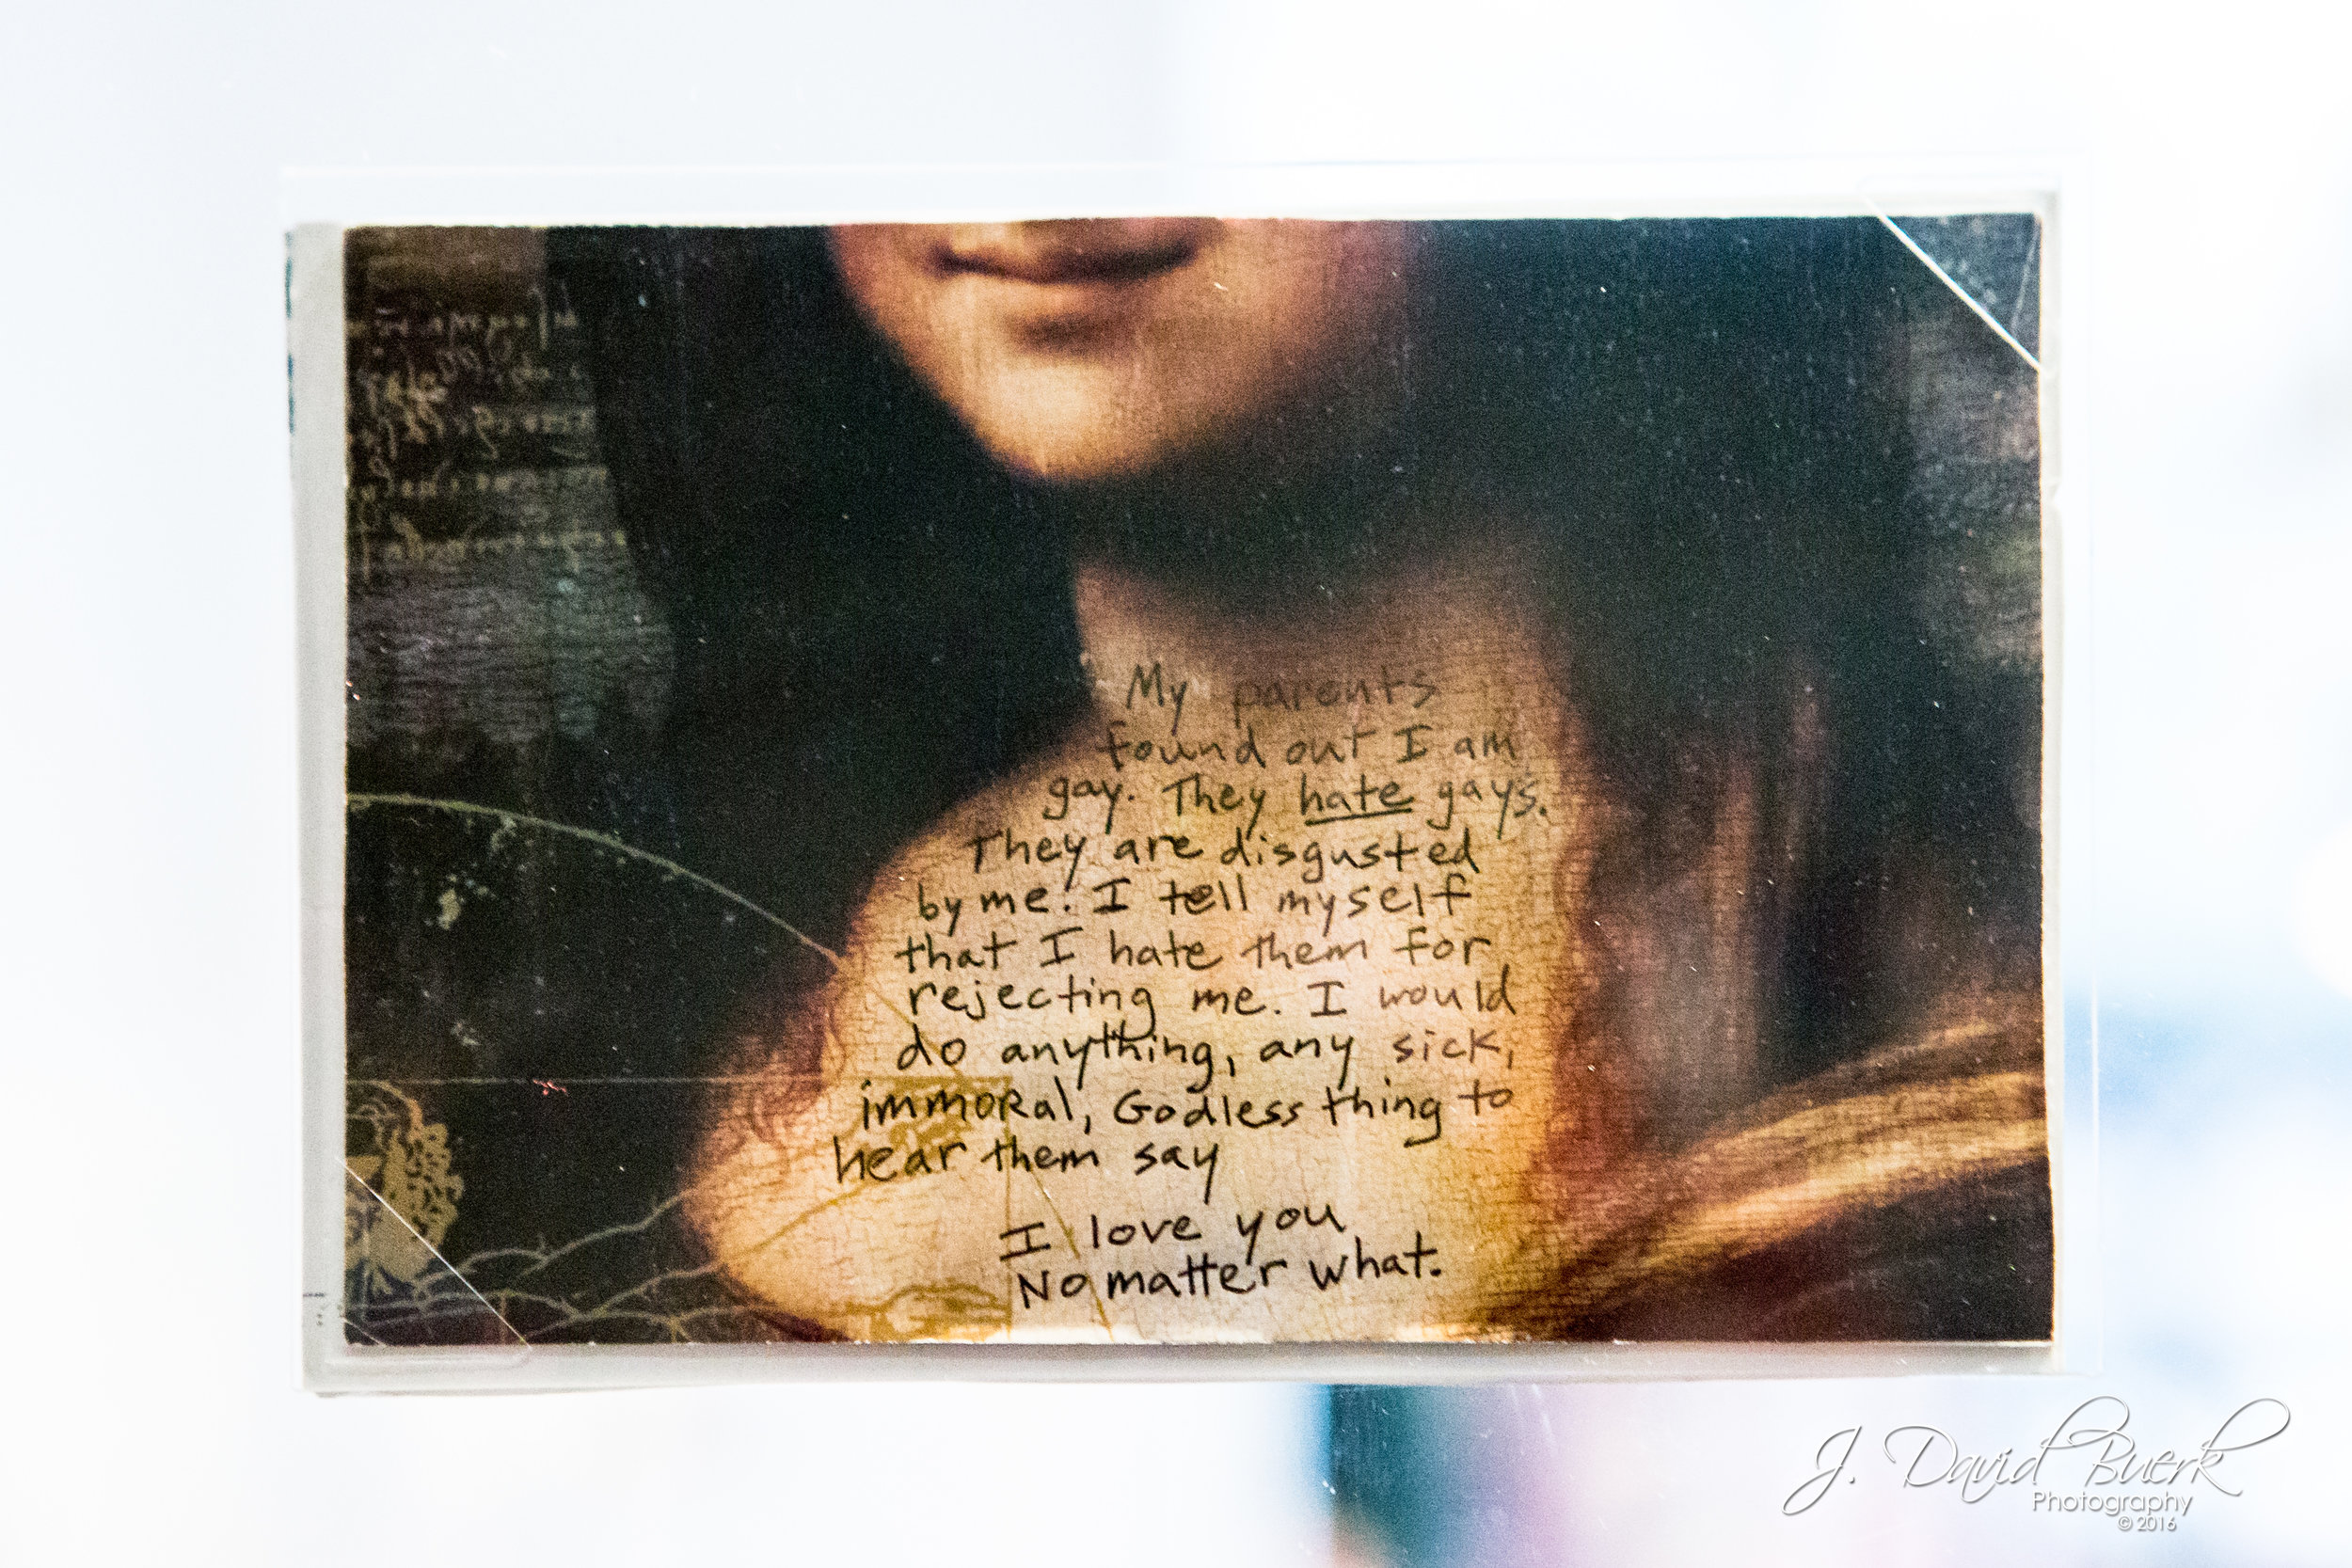 My parents
found out I am
gay. They hate gays.
They are disgusted
by me. I tell myself
that I hate them for
rejecting me. I would
do anything, any sick,
immoral, Godless thing to
hear them say
I love you
No matter what.
J. David Buerk
Photography
© 2016